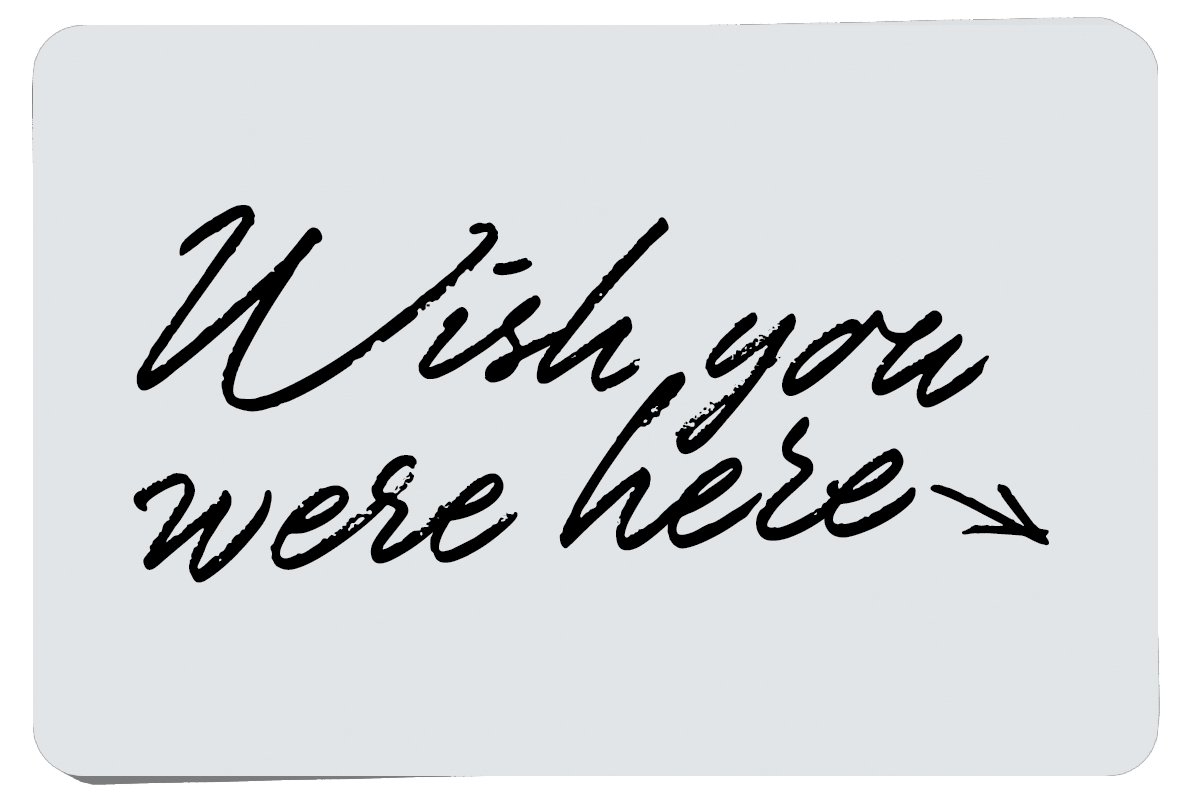 Wish you
were here